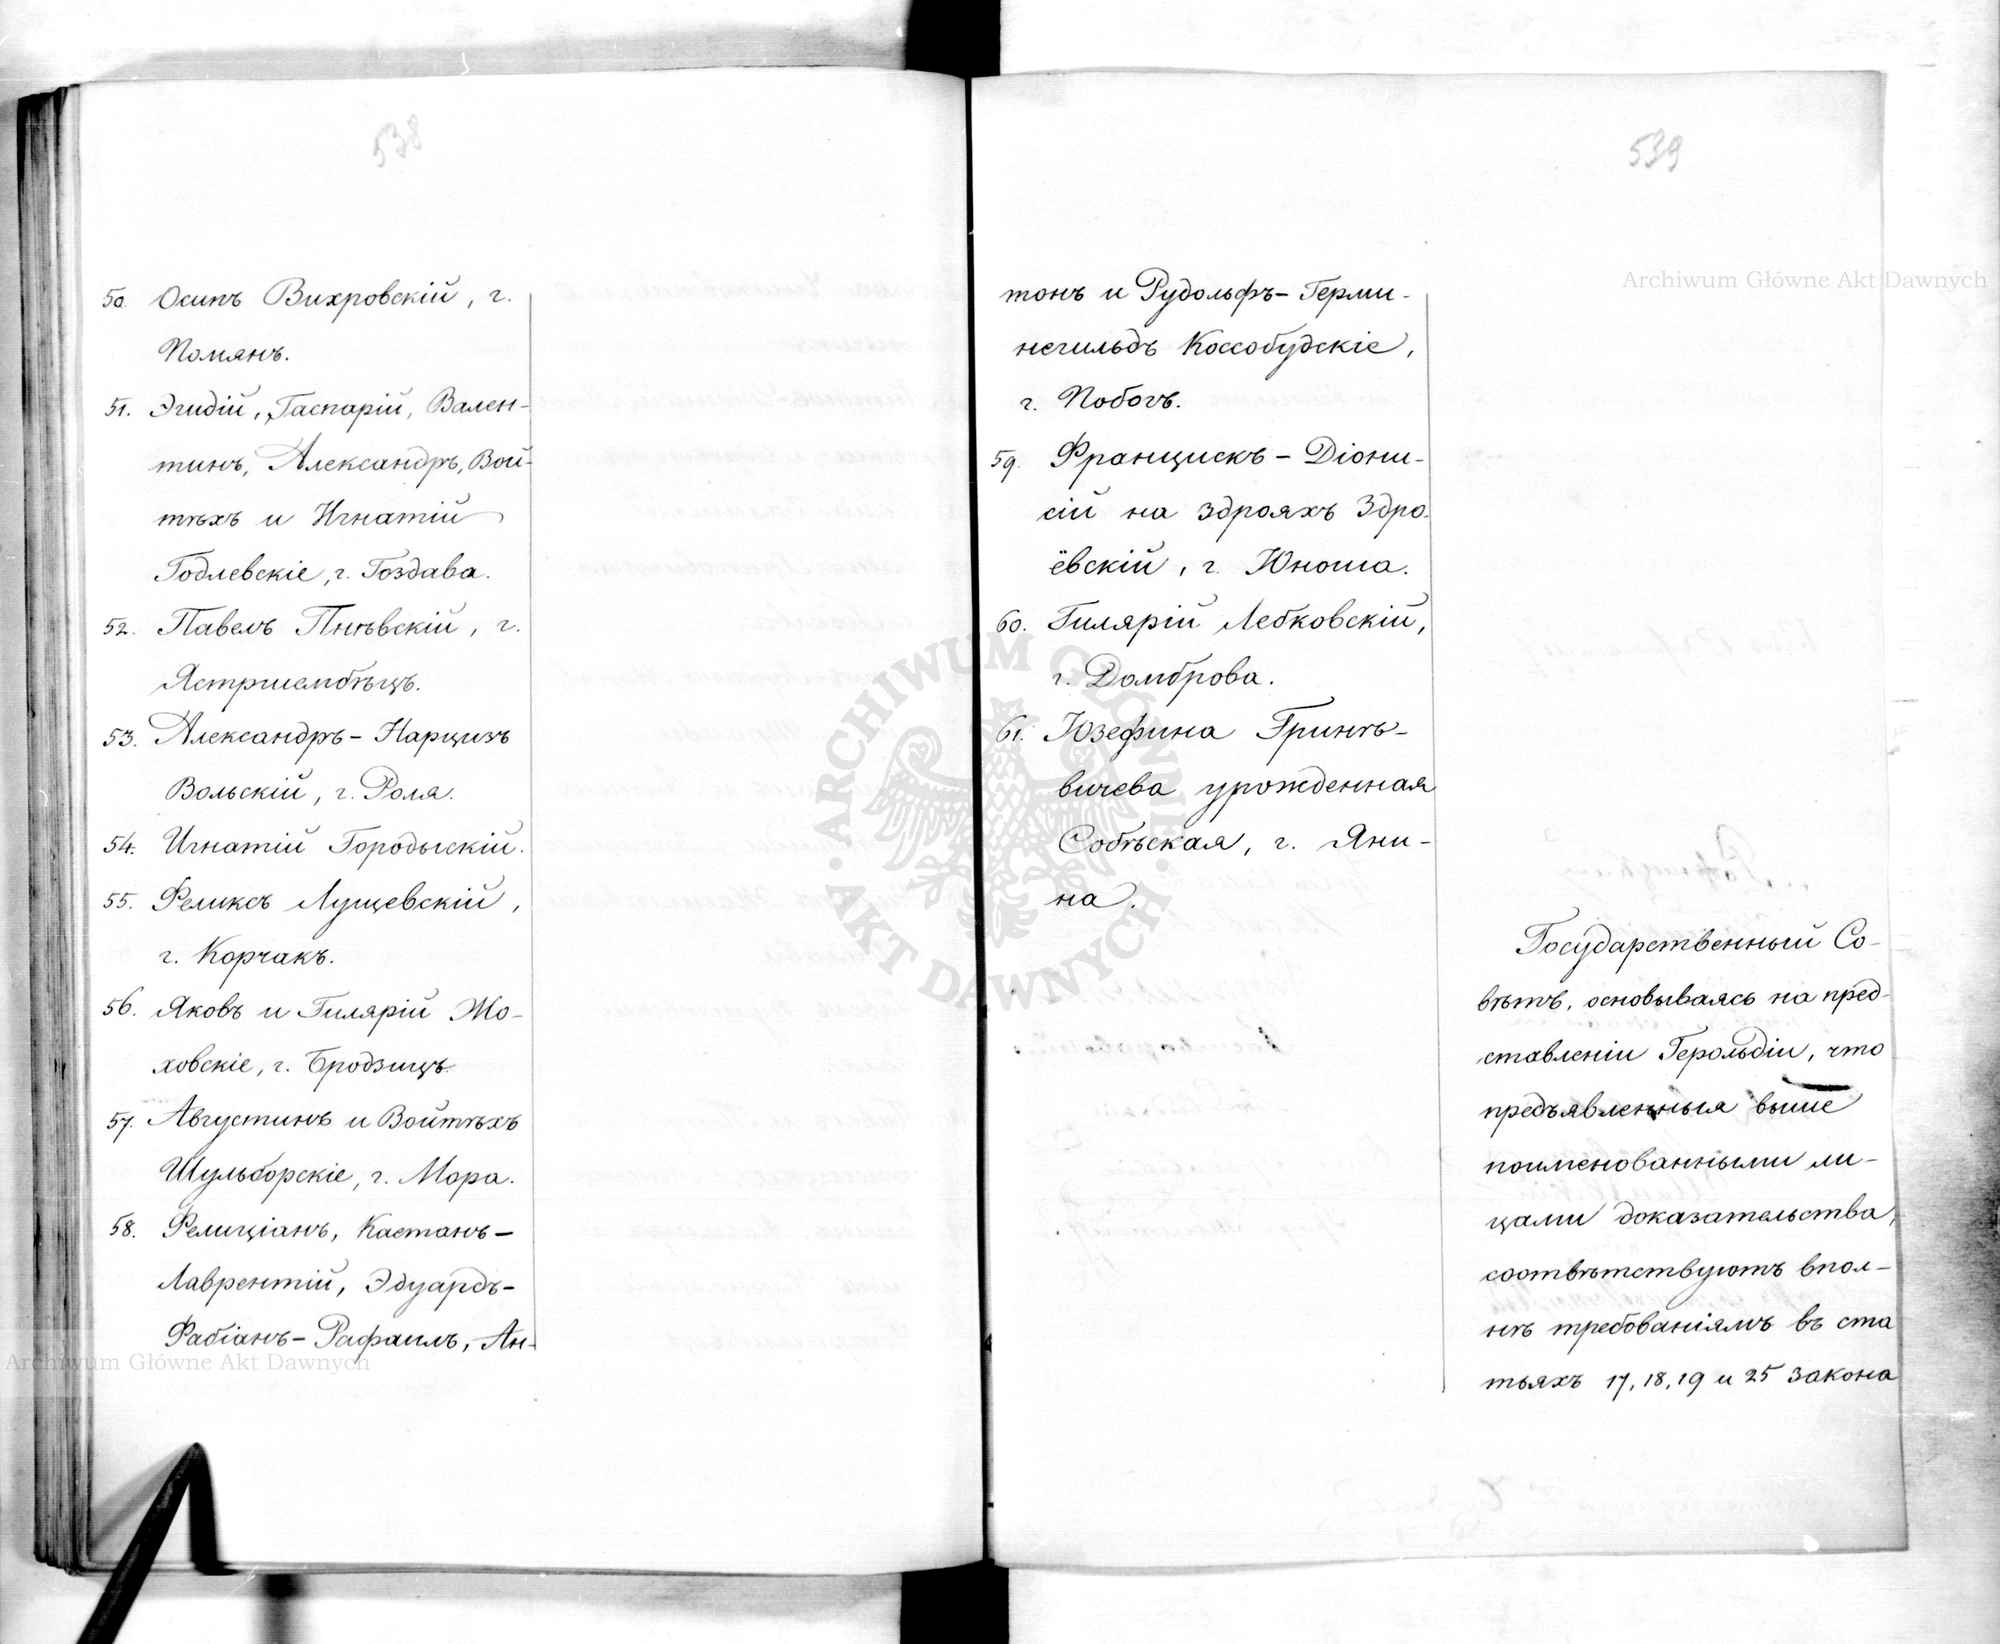 538
50. Осипъ Вихровскій, г.
Помянъ.
51. Эгидій, Гаспарій, Вален-
тинъ, Александръ, Вой-
тѣхъ и Игнатій
Годлевскіе, г. Гоздава.
52. Павелъ Пнѣвскій, г.
Ястршембѣцъ.
53. Александръ-Нарцизъ
Вольскій, г. Роля.
54. Игнатій Городыскій.
55. Феликсъ Лущевскій,
г. Корчакъ.
56. Яковъ и Гилярій Мо-
ховскіе, г. Бродзицъ.
57. Августинъ и Войтѣхъ
Шульборскіе, г. Мора.
58. Фелиціанъ, Каетанъ-
Лаврентій, Эдуардъ-
Фабіанъ-Рафаилъ, Ан-
Archiwum Główne Akt Dawnych
539
Archiwum Główne Akt Dawnych
тонъ и Рудольфъ-Герми-
негильдъ Коссобудскіе,
г. Побогъ.
59. Францискъ-Діони-
сій на Здрояхъ Здро-
ёвскій, г. Юноша.
60. Гилярій Лебковскій,
г. Домброва.
61. Юзефина Гринѣ-
вичева урожденная
Собѣская, г. Яни-
на.
Государственный Со-
вѣтъ, основываясь на пред-
ставленіи Герольдіи, что
предъявленныя выше
поименованными ли-
цами доказательства,
соотвѣтствуютъ впол-
нѣ требованіямъ въ ста
тьяхъ 17, 18, 19 и 25 закона
ARCHIWUM GŁÓWNE AKT DAWNYCH